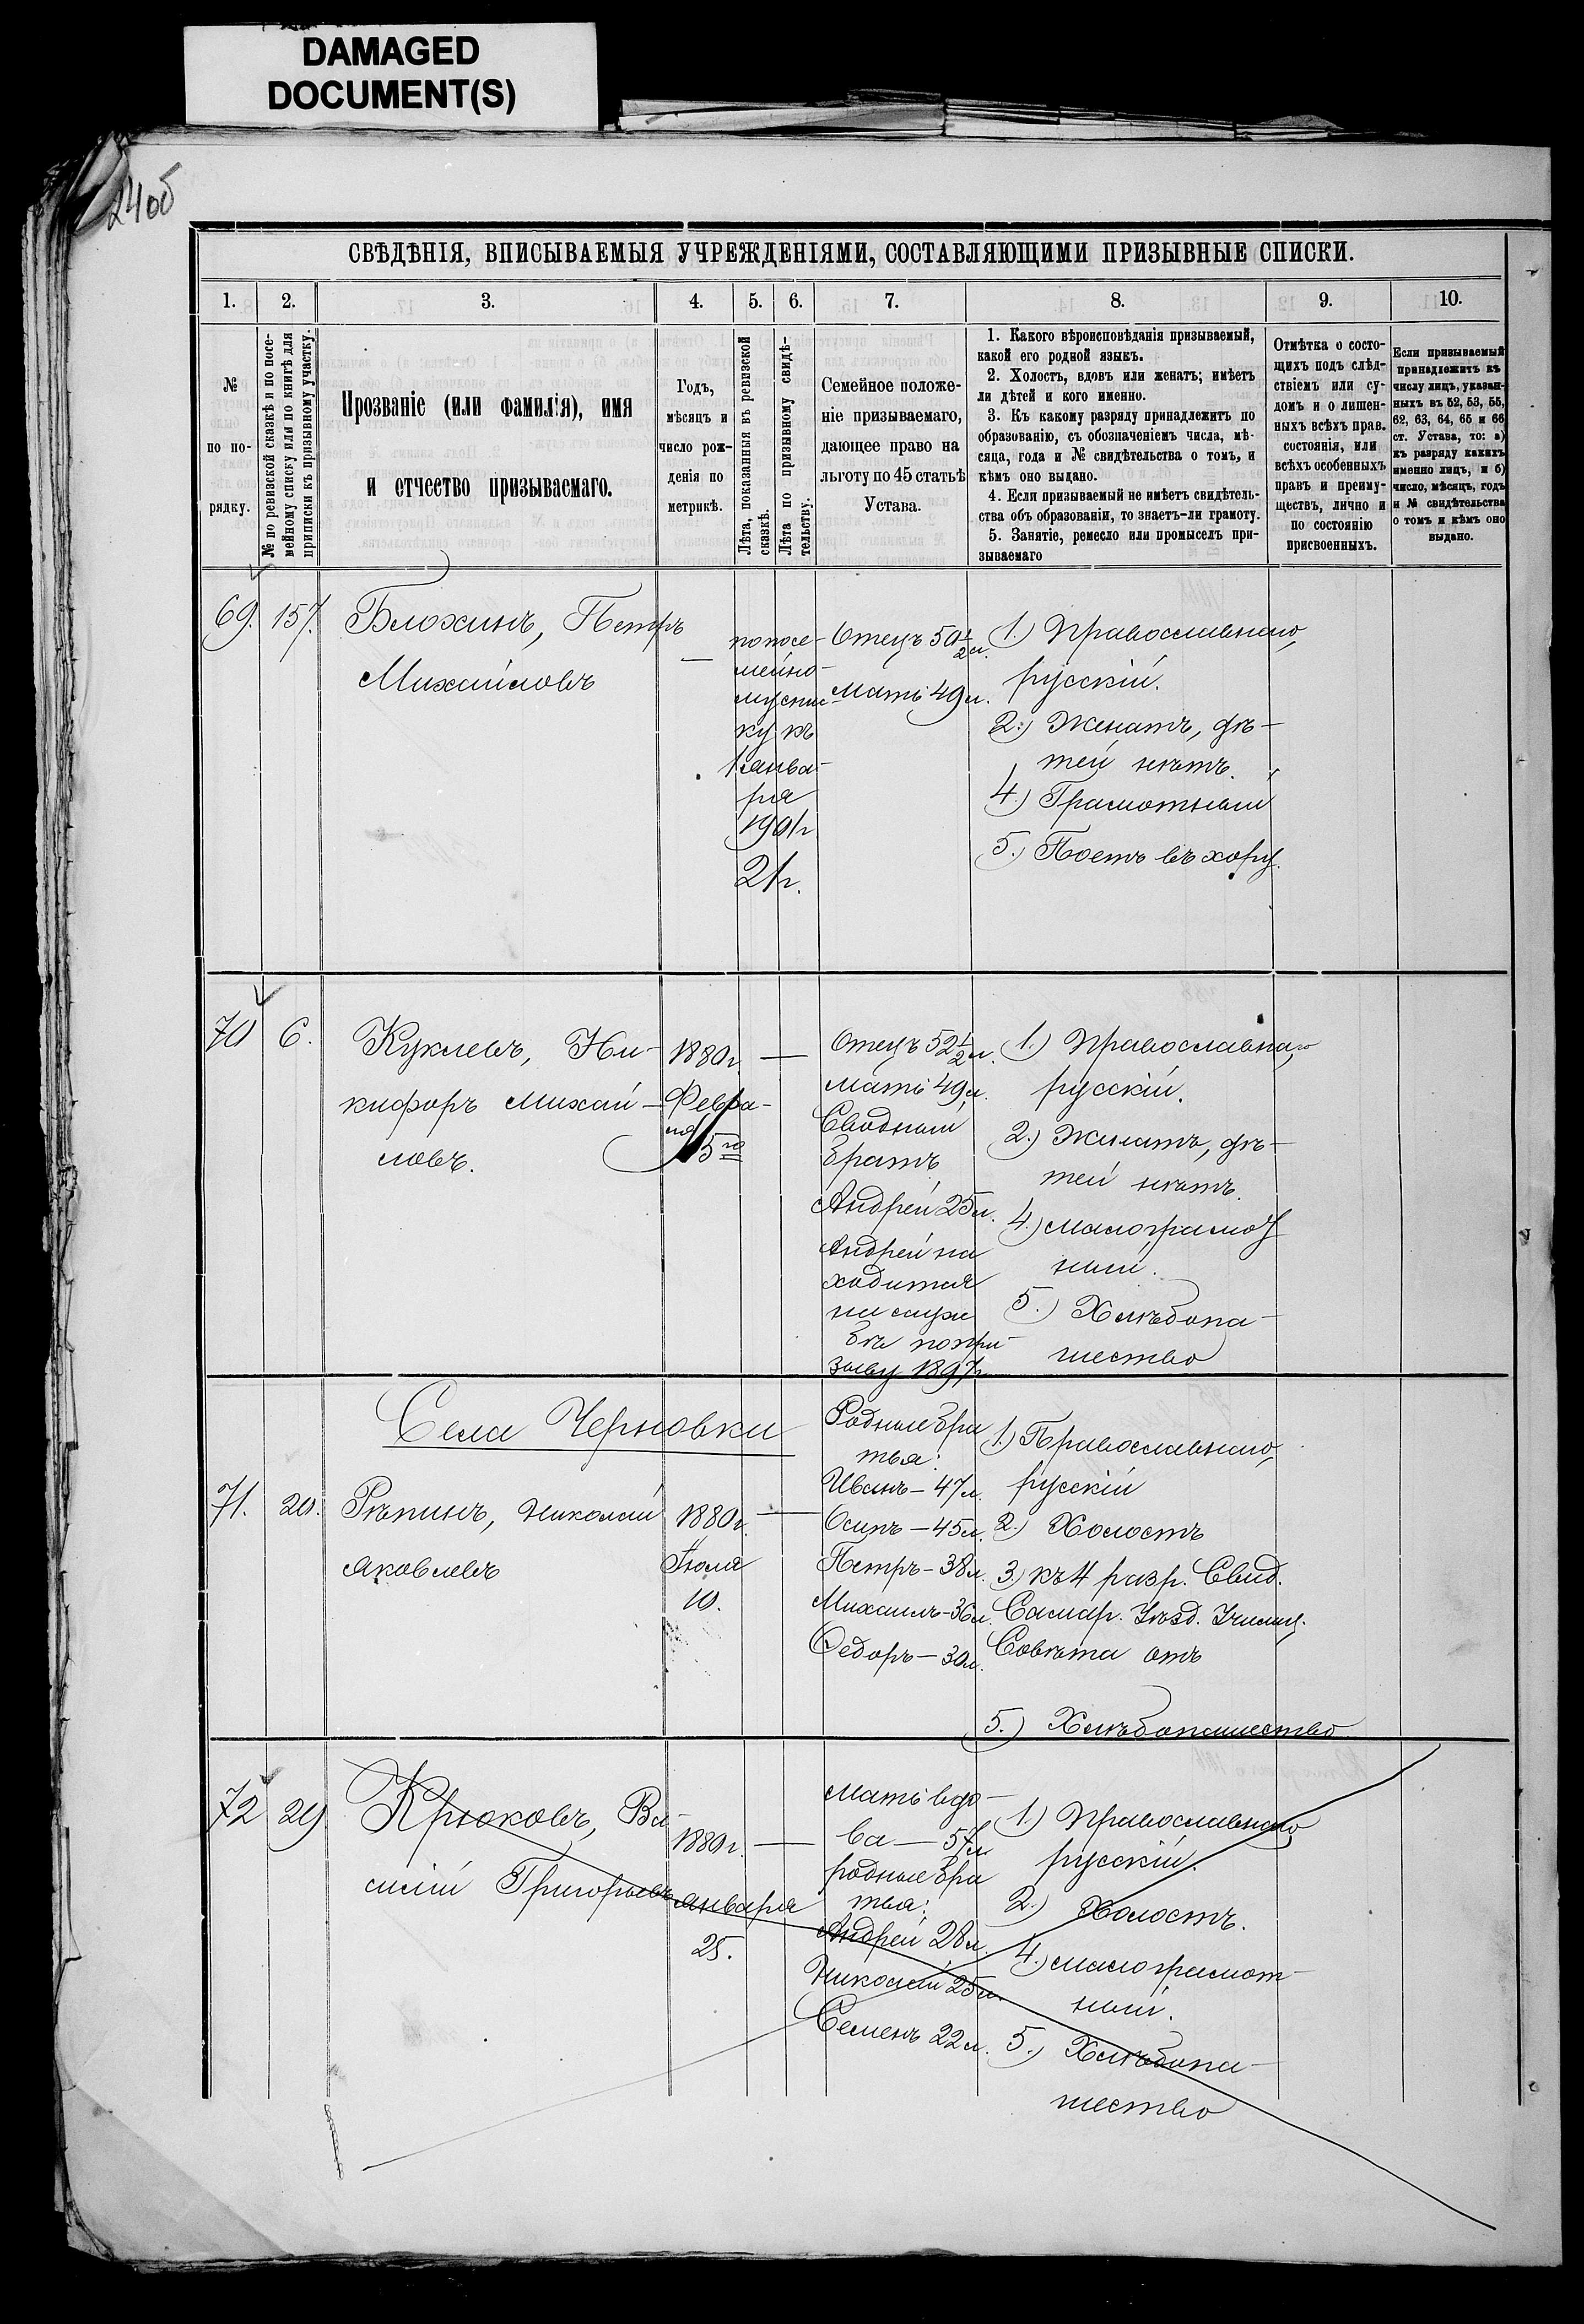 DAMAGED
DOCUMENT(S)
24об
СВѢДѢНІЯ, ВПИСЫВАЕМЫЯ УЧРЕЖДЕНІЯМИ, СОСТАВЛЯЮЩИМИ ПРИЗЫВНЫЕ СПИСКИ.
1. 2. 3. 4. 5. 6. 7. 8. 9. 10.
№
по по-
рядку.
№ по ревизской сказкѣ и по посе-
мейному списку или по книгѣ для
приписки къ призывному участку.
Прозваніе (или фамилія), имя
и отчество призываемаго.
Годъ,
мѣсяцъ и
число рож-
денія по
метрикѣ.
Лѣта, показанныя въ ревизской
сказкѣ.
Лѣта по призывному свидѣ-
тельству.
Семейное положе-
ніе призываемаго,
дающее право на
льготу по 45 статьѣ
Устава.
1. Какого вѣроисповѣданія призываемый,
какой его родной языкъ.
2. Холостъ, вдовъ или женатъ; имѣетъ
ли дѣтей и кого именно.
3. Къ какому разряду принадлежитъ по
образованію, съ обозначеніемъ числа, мѣ-
сяца, года и № свидѣтельства о томъ, и
кѣмъ оно выдано.
4. Если призываемый не имѣетъ свидѣтель-
ства объ образованіи, то знаетъ-ли грамоту.
5. Занятіе, ремесло или промыселъ при-
зываемаго
Отмѣтка о состо-
ящихъ подъ слѣд-
ствіемъ или су-
домъ и о лишен-
ныхъ всѣхъ прав.
состоянія, или
всѣхъ особенныхъ
правъ и преиму-
ществъ, лично и
по состоянію
присвоенныхъ.
Если призываемый
принадлежитъ къ
числу лицъ, указан-
ныхъ въ 52, 53, 55,
62, 63, 64, 65 и 66
ст. Устава, то: а)
къ разряду какихъ
именно лицъ, и б)
число, мѣсяцъ, годъ
и № свидѣтельства
о томъ и кѣмъ оно
выдано.
69. 157.
Блохинъ, Петръ
Михайловъ
—
по посе-
мейно-
му спис-
ку къ
1 янва-
ря
1901 г.
21 г.
Отецъ 50 1/2 л.
Мать 49 л.
1.) Православнаго,
русскій.
2.) Женатъ, дѣ-
тей нѣтъ.
4.) Грамотный
5.) Поетъ въ хору.
70 6.
Куклевъ, Ни-
кифоръ Михай-
ловъ.
1880 г. —
Февра-
ля
5го
Отецъ 52 1/2 л.
Мать 49 л.
Сводный
братъ
Андрей 25 л.
Андрей на
ходится
на служ
бѣ по при-
зыву 1897 г.
1.) Православнаго
русскій.
2.) Женатъ, дѣ-
тей нѣтъ.
4.) малограмот
ный.
5.) Хлѣбопа-
шество
Села Черновки
71. 20.
Рѣпинъ, Николай
Яковлевъ
1880 г. —
Іюля
10.
Родные бра
тья:
Иванъ — 47 л.
Осипъ — 45 л.
Петръ — 38 л.
Михаилъ — 36 л.
Ѳедоръ — 30 л.
1.) Православнаго,
русскій
2.) Холостъ
3.) къ 4 разр. Свид.
Самар. Уѣзд. Училищ.
Совѣта отъ
5.) Хлѣбопашество
72 29
Крюковъ, Ва-
силій Григорьевъ
1880 г. —
января
25.
Мать вдо-
ва — 57 л.
родные бра
тья:
Андрей 28 л.
Николай 25 л.
Семенъ 22 л.
1.) Православнаго
русскій.
2.) Холостъ.
4.) малограмот-
ный.
5.) Хлѣбопа-
шество